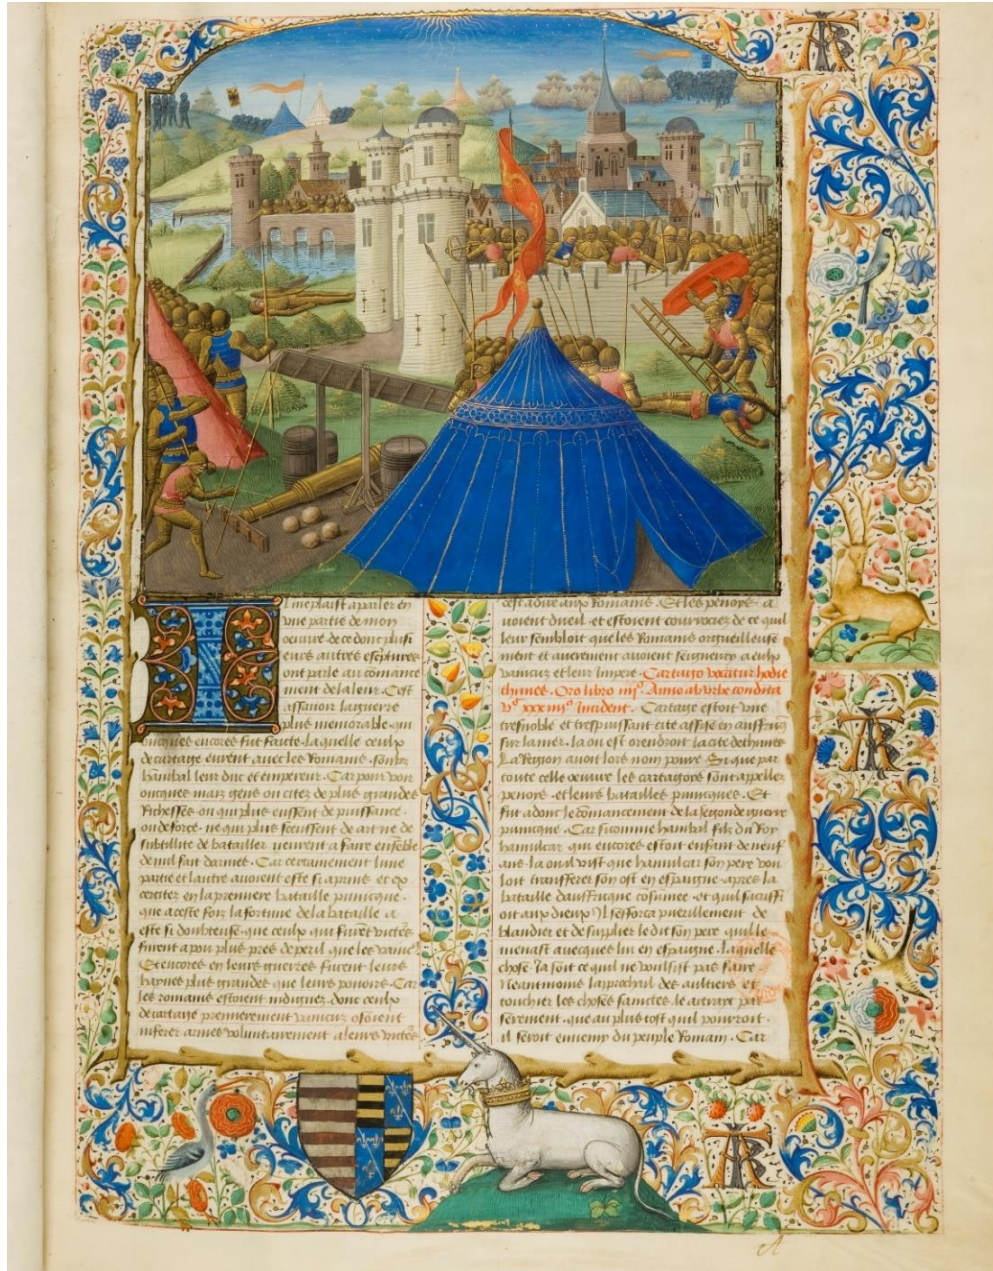 Il me plaist a parler en
une partie de mon
oeuvre de ce dont plusi
eurs autres escriptures
ont parle au comance
ment de la leur. C'est
assavoir la guerre
plus memorable qui
oncques encores fut faicte. la quelle ceulx
de cartage eurent avec les Romains. soubz
hanibal leur duc et empereur. Car pour voir
oncques mais gens ou citez de plus grandes
Richesses. ou qui plus eussent de puissance.
ou de force. ne qui plus sceussent de art ne de
subtilite de batailler vindrent a faire ensemble
de nul fait darmes. Car certainement lune
partie et lautre avoient este si aprins et ex
cercitez en la premiere bataille punicque.
que a ceste fois la fortune de la bataille a
este si doubteuse que ceulx qui furent victe
furent a pou plus pres de peril que les vaincus
Et encores en leurs guerres furent leurs
haynes plus grandes que leurs povoirs. Car
les romains estoient indignez. dont ceulx
de cartage premierement vaincuz osoient
inferer armes voluntairement a leurs victe
cest a dire aux Romains. Et les penoys a
voient dueil. et estoient courroucez de ce quil
leur sembloit que les Romains orgueilleuse
ment et averement avoient seigneury a eulx
vaincuz et leur impere. Cartago vocatur hodie
thunes. Oro libro iiijo Anno ab urbe condita
vc xxx iiijo Incident. Cartage estoit une
tresnoble et trespuissant cite assise en auffrique
sur la mer. la on est orendroit la cite de thunes
La Region avoit lors nom penne. Si que par
toute celle oeuvre les cartagois sont appellez
penoys. et leurs batailles punicques. Et
fut adonc le comancement de la segonde guerre
punicque. Car si comme hanibal filz du Roy
hamilcar qui encores estoit enfant de neuf
ans. la ou il vist que hamilcar son pere vou
loit transferer son ost en espaigne. apres la
bataille dauffricque consumee. et quil sacriffi
oit aux dieux Il sefforca puerillement de
blandier et de supplier le dit son pere quil le
menast avecques lui en espaigne. Laquelle
chose. Ja soit ce quil ne voulsist pas faire
Neantmoins lapprocha des aultiers et
toucher les choses sainctes. le astrayt par
serement. que au plus tost quil pourroit.
il seroit ennemy du peuple Romain. Car